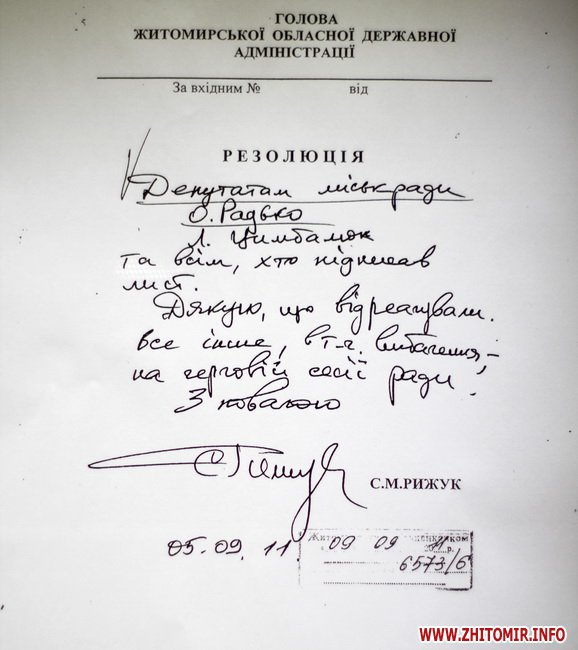 ГОЛОВА
ЖИТОМИРСЬКОЇ ОБЛАСНОЇ ДЕРЖАВНОЇ
АДМІНІСТРАЦІЇ
За вхідним № від
РЕЗОЛЮЦІЯ
Депутатам міськради
О. Радько
Л. Цимбалюк
та всім, хто підписав
лист.
Дякую, що відреагували.
Все інше, в т.ч. вибачення, –
на черговій сесії ради!
З повагою
С.М.РИЖУК
05.09.11
09 09 11
6573/6
WWW.ZHITOMIR.INFO